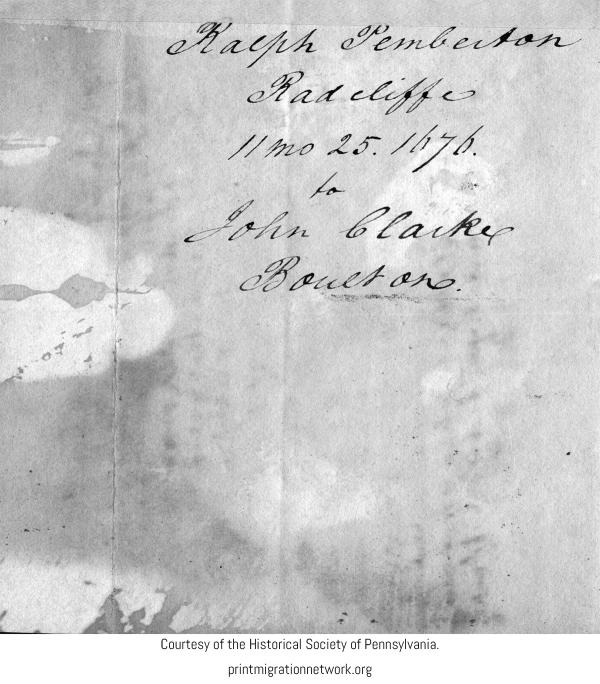 Ralph Pemberton
Radcliffe
11 mo 25. 1676.
to
John Clarke
Boulton.
Courtesy of the Historical Society of Pennsylvania.
printmigrationnetwork.org